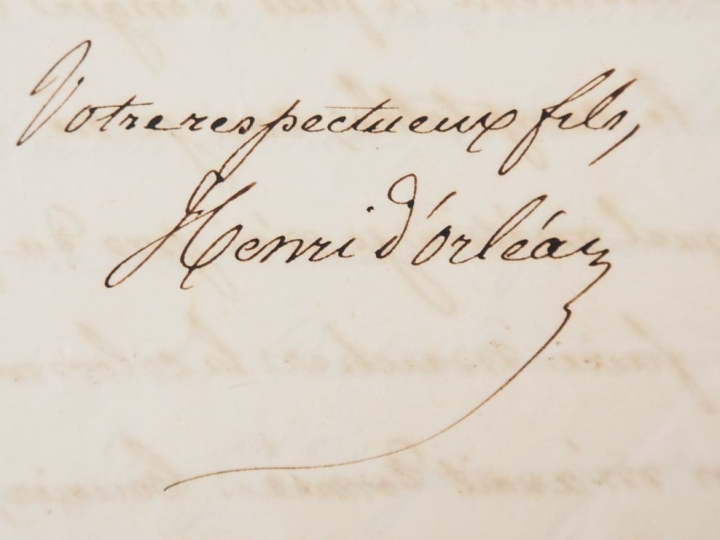 Votre respectueux fils,
Henri d'Orléans